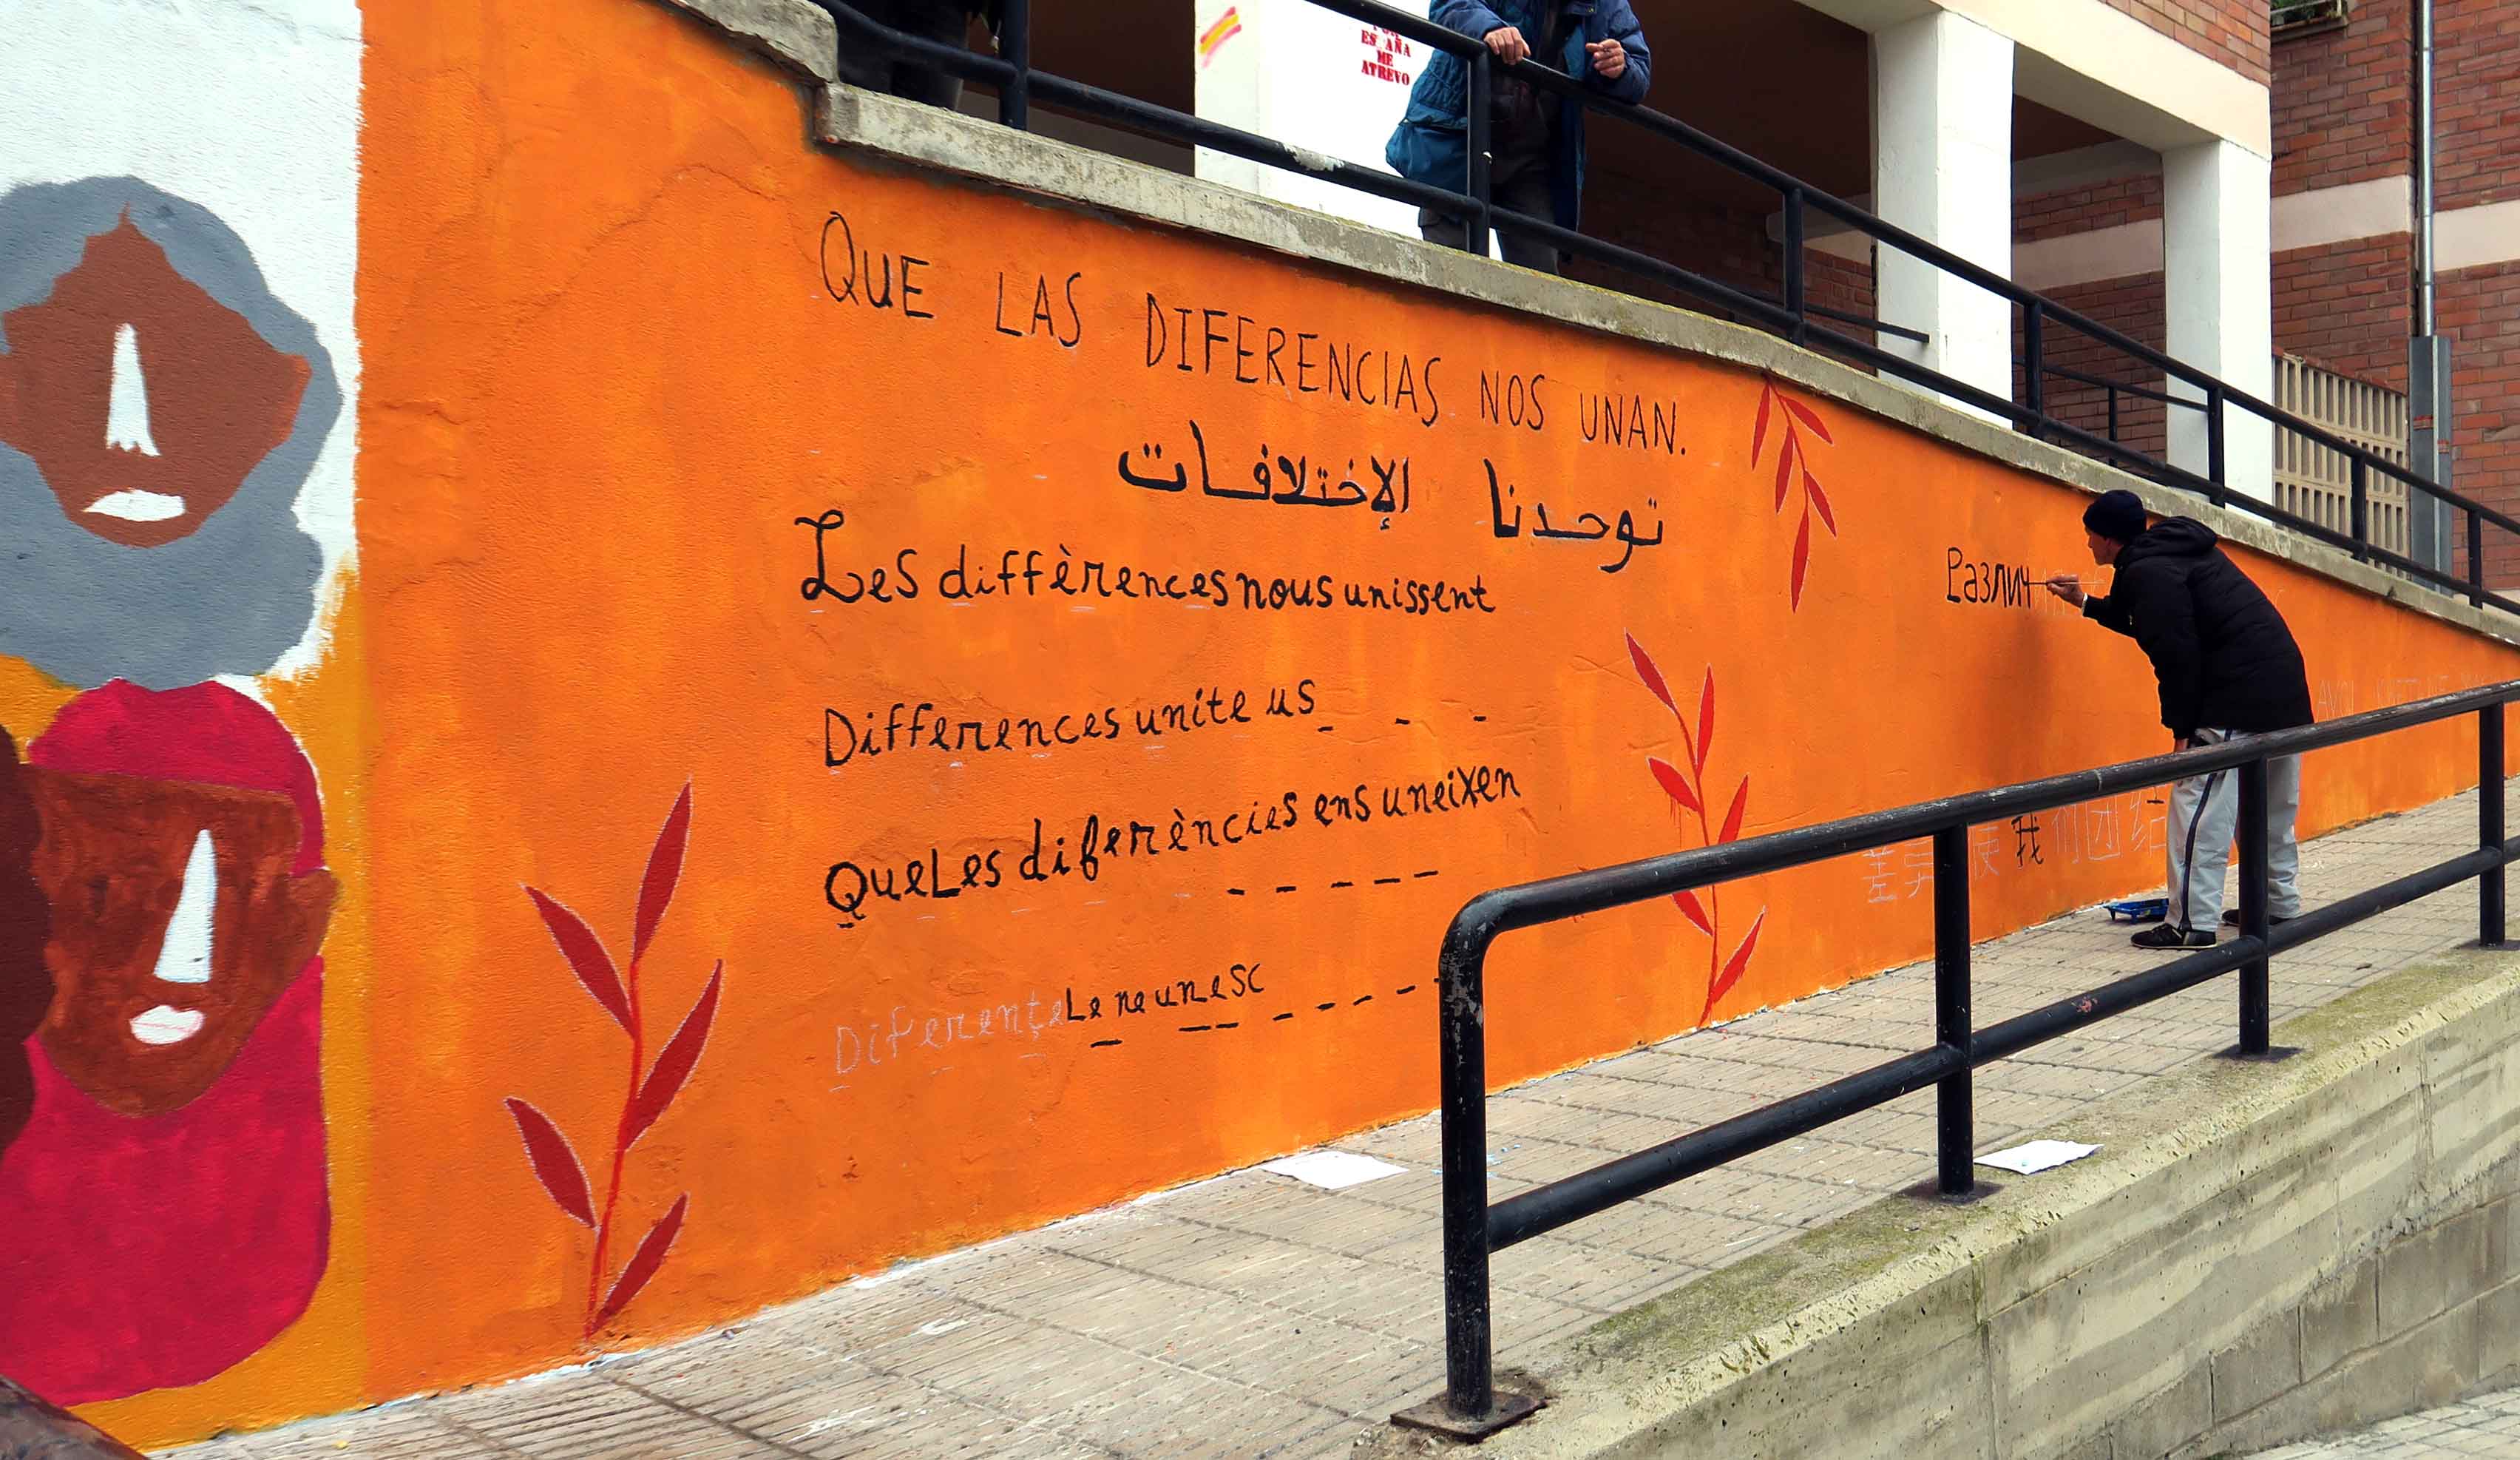 ESPAÑA
ME
ATREVO
QUE LAS DIFERENCIAS NOS UNAN.
توحدنا الإختلافات
Les diffèrences nous unissent
Differences unite us
Que Les diferències ens uneixen
Diferențele ne unesc
Различ
差异使我们团结